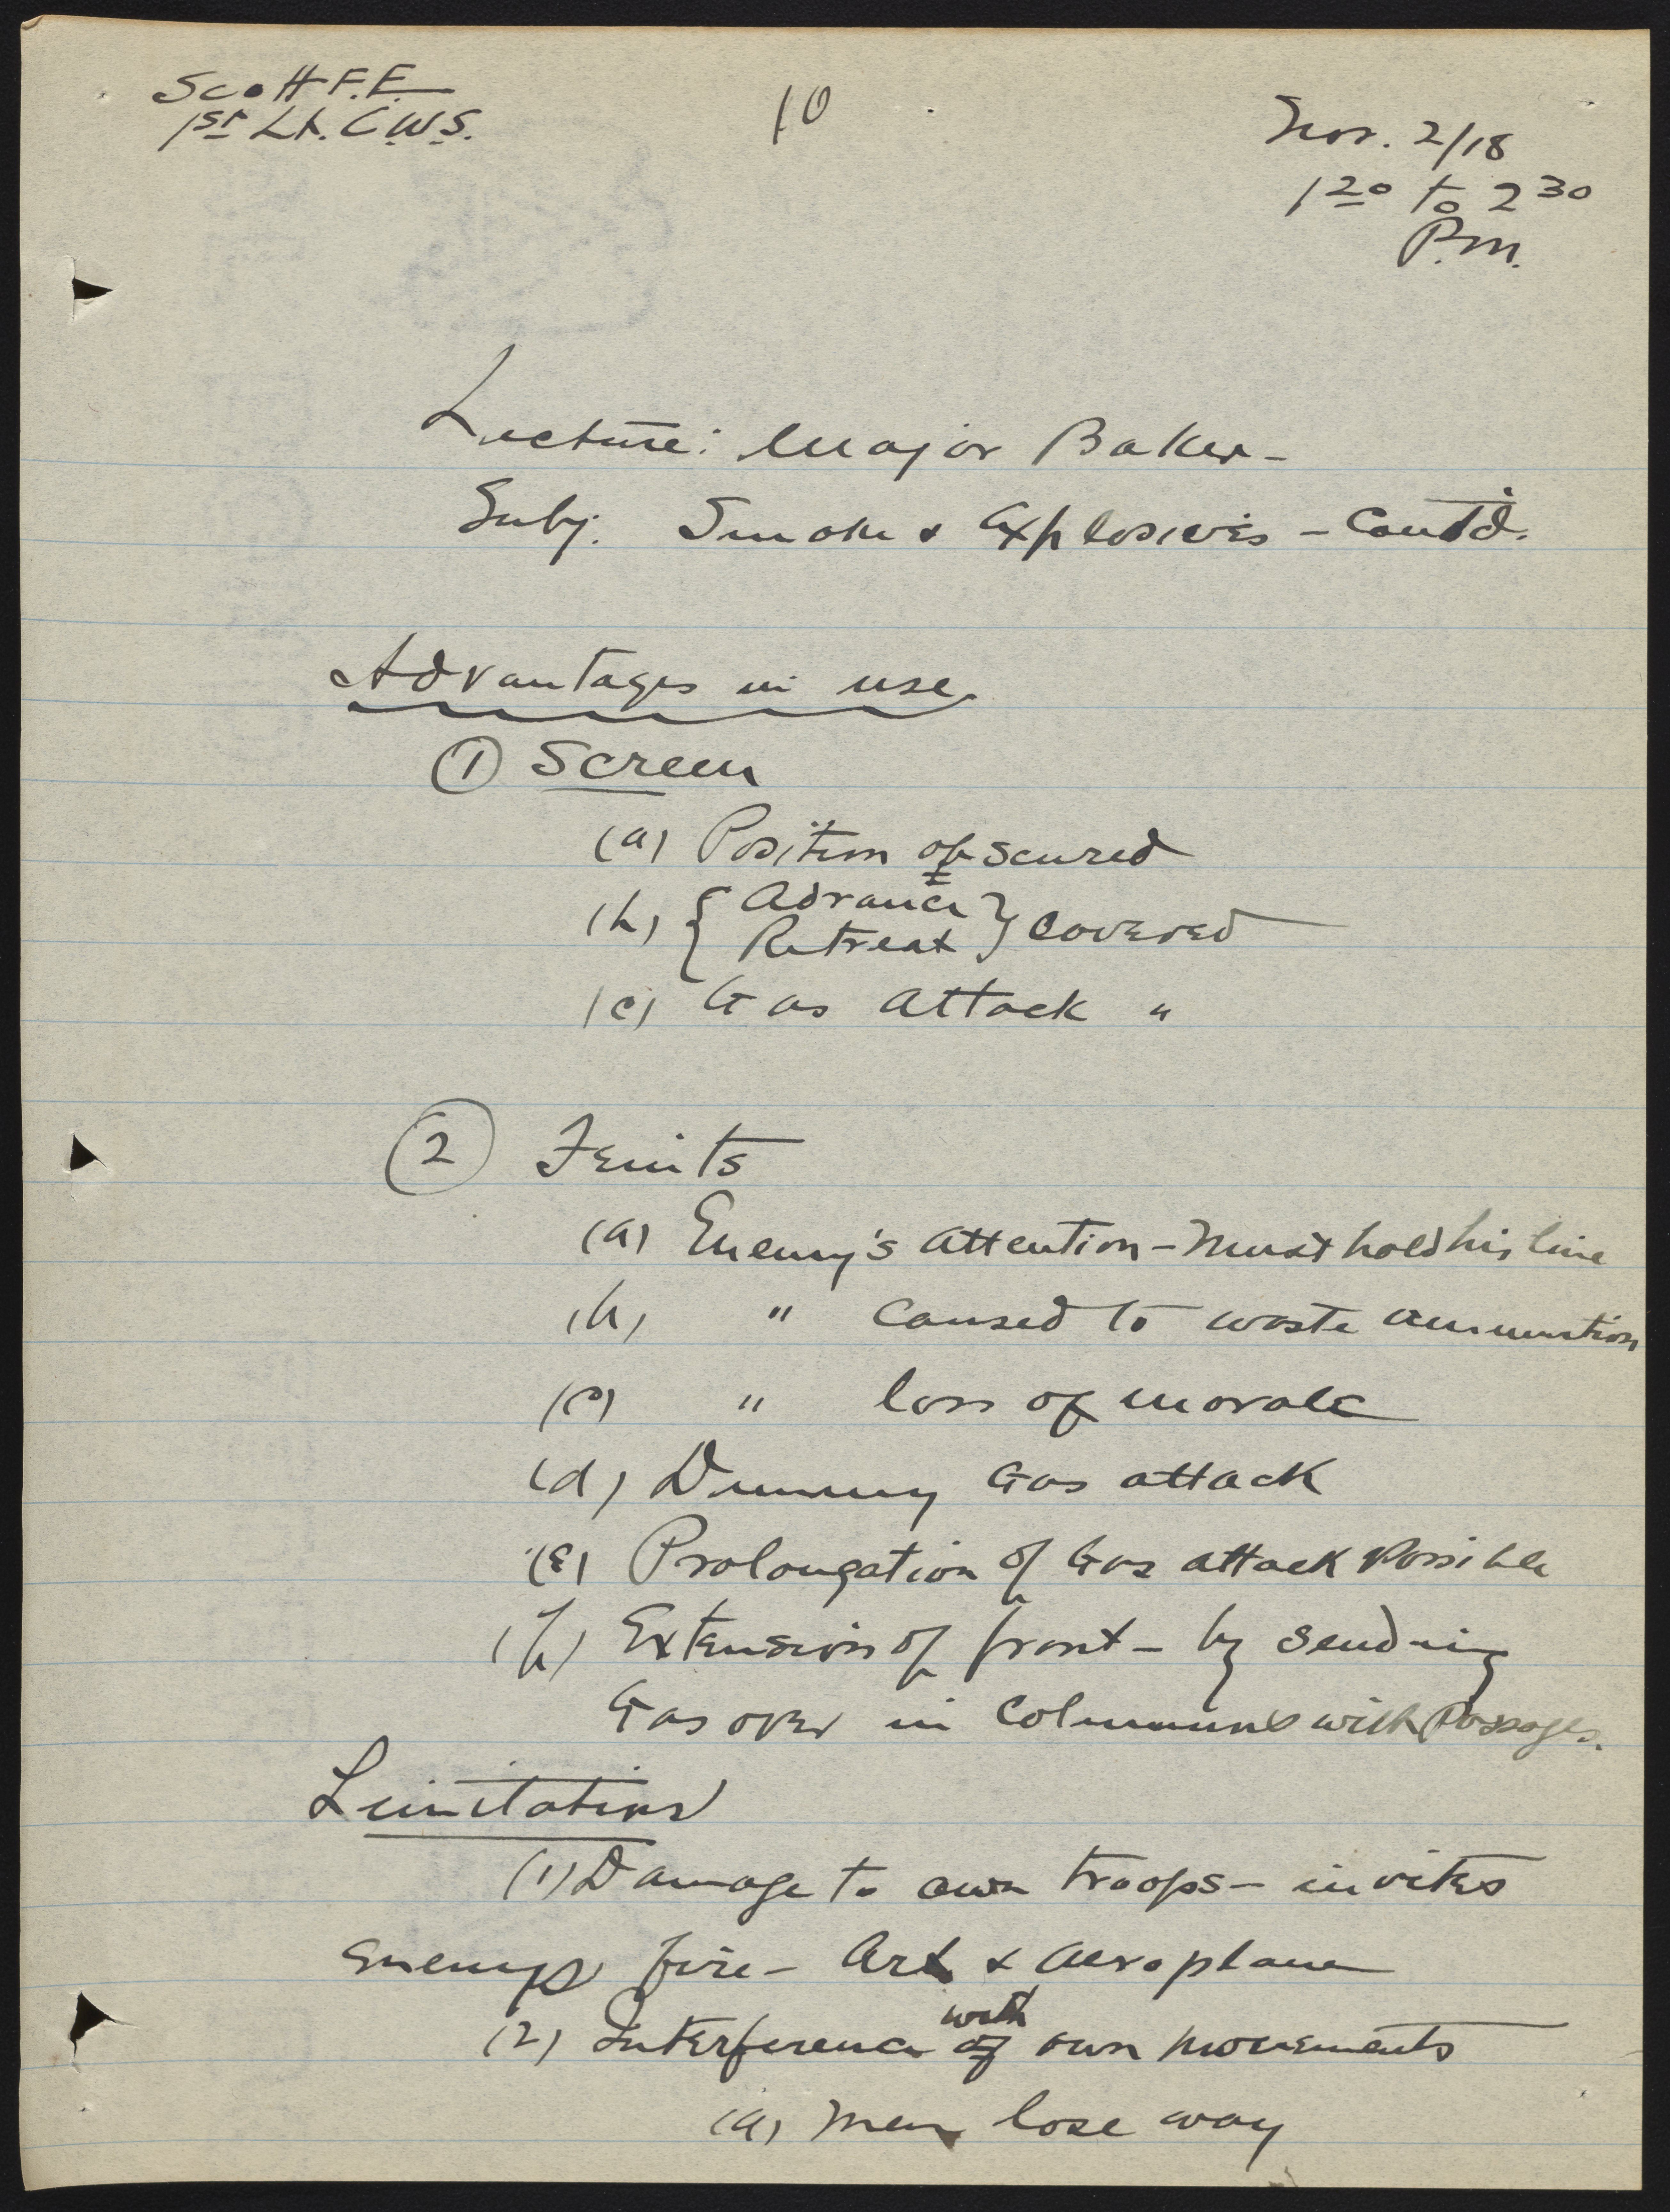 Scott F.E.
1st Lt. C.W.S.
10
Nov. 2/18
1 20 to 2 30
P.M.
Lecture: Major Baker -
Subj. Smoke & Explosives - Cont'd.
Advantages in use
(1) Screen
(a) Position obscured
(b) { Advance
Retreat } covered
(c) Gas attack "
(2) Feints
(a) Enemy's attention - Must hold his line
(b) " caused to waste ammunition
(c) " loss of morale
(d) Dummy Gas attack
(e) Prolongation of Gas attack possible
(f) Extension of front - by sending
Gas over in columns with passages.
Limitations
(1) Damage to own troops - invites
Enemys fire - Art & Aeroplane
with
(2) Interference of own movements
(a) Men lose way